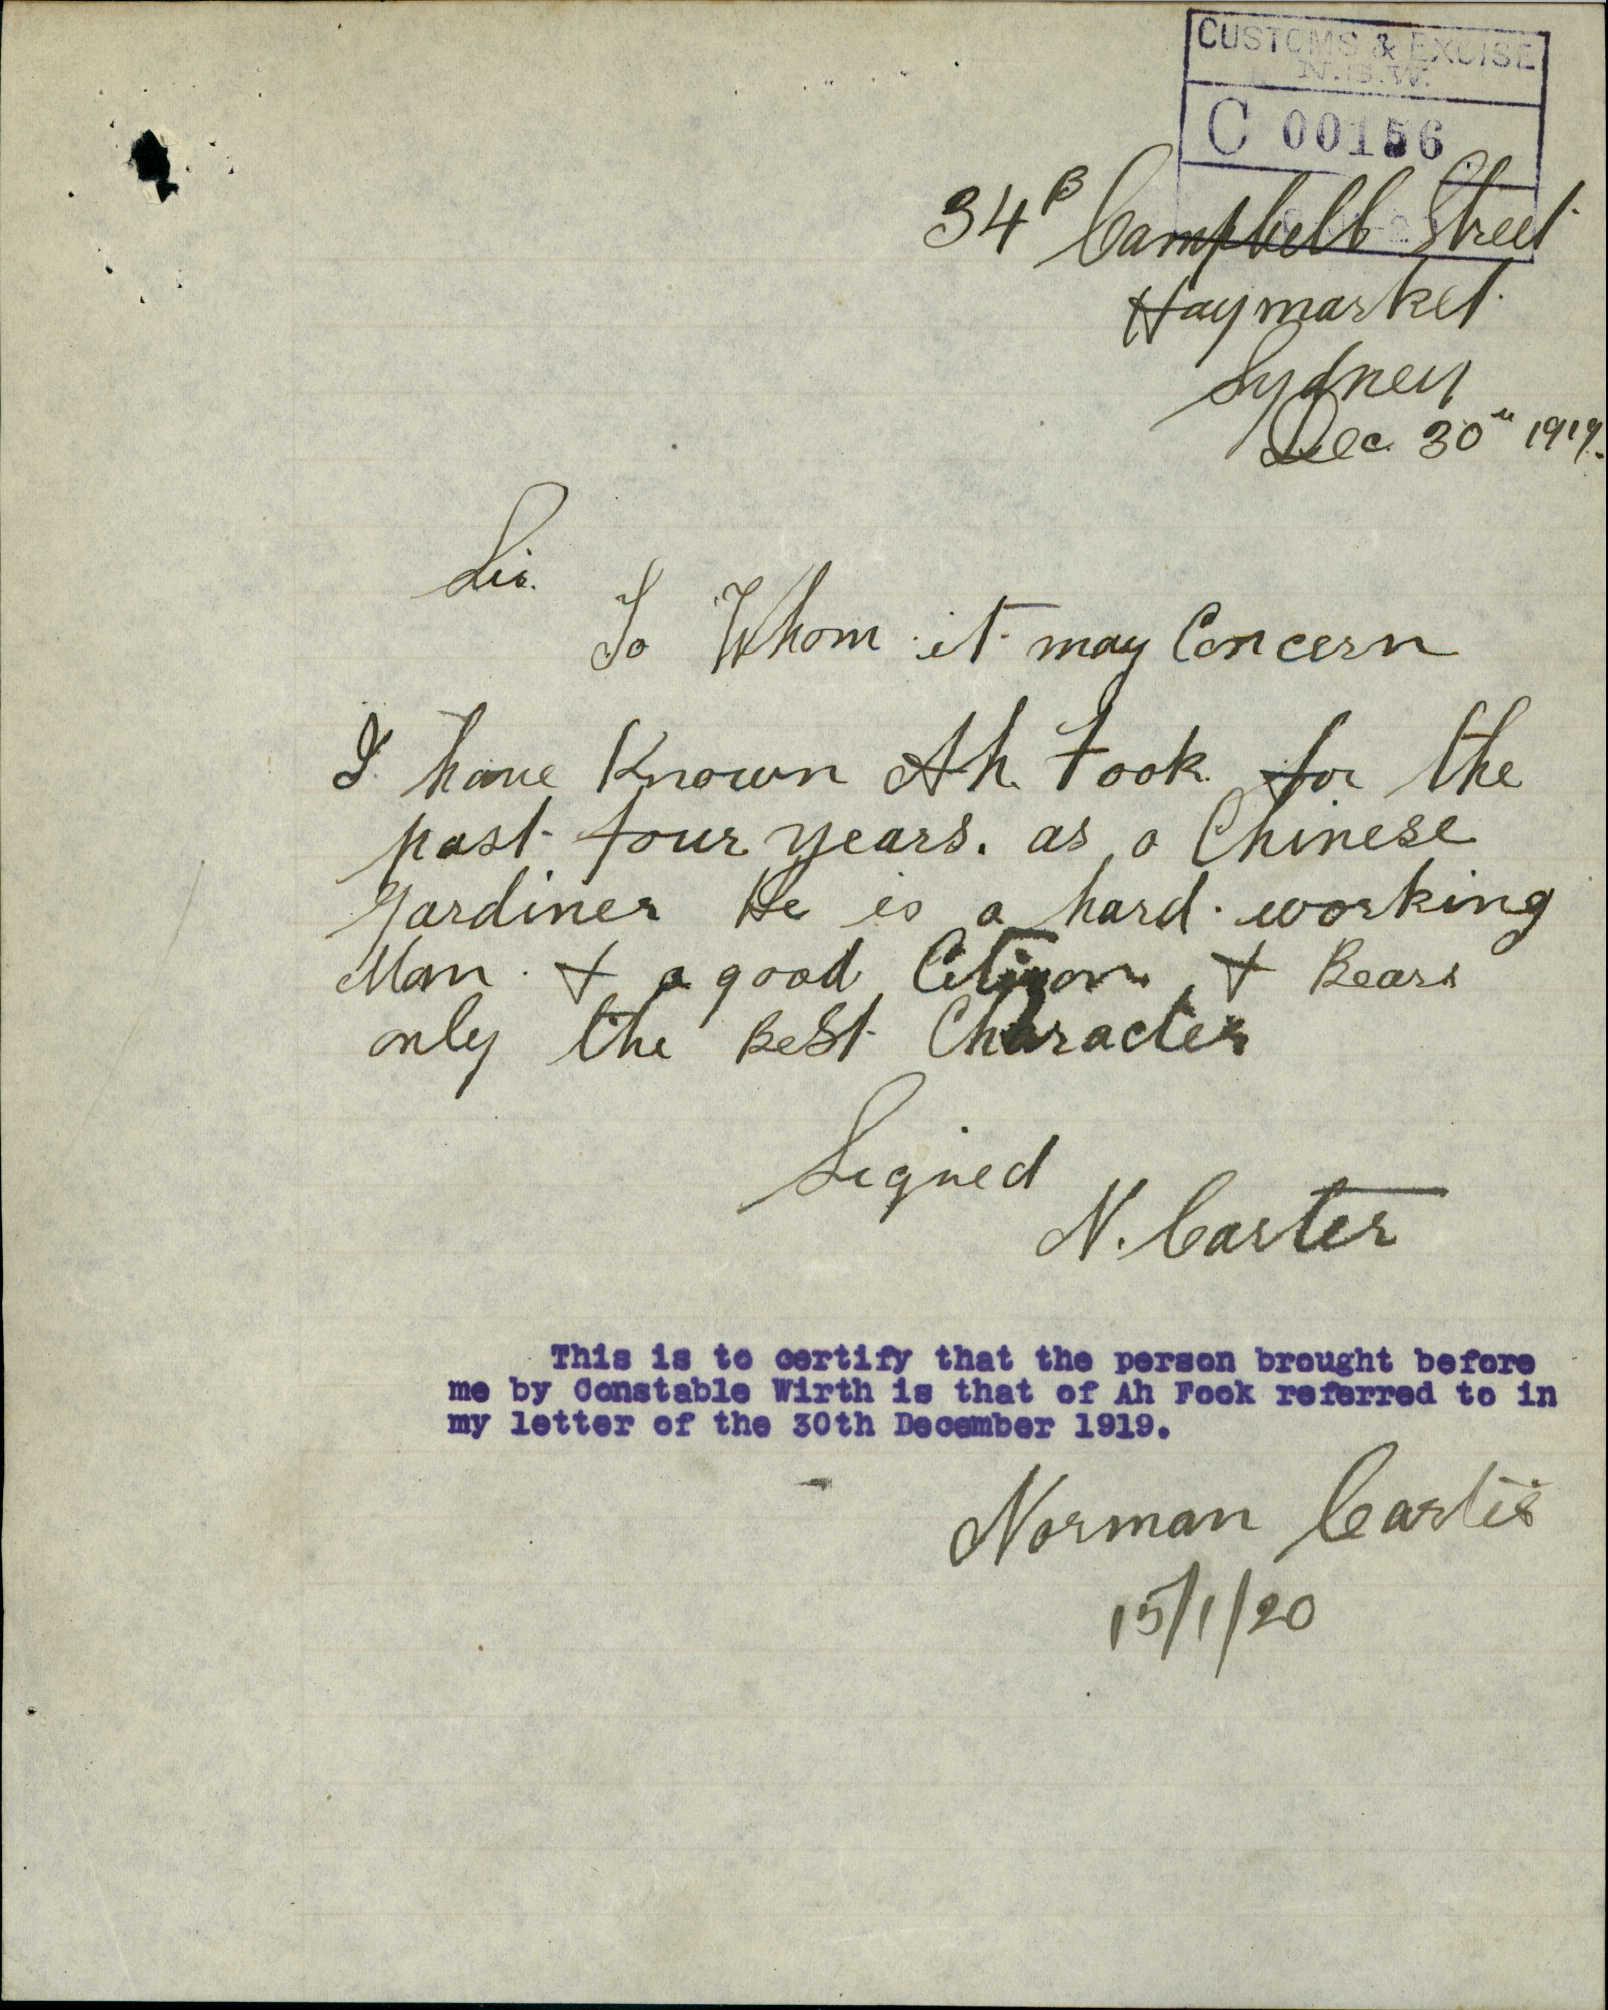 CUSTOMS & EXCISE
N.S.W.
C 00156
34B Campbell Street
Haymarket
Sydney
Dec. 30th 1919.
Sir.
To Whom it may Concern
I have Known Ah. Fook. for the
past four years. as a Chinese
Gardiner He is a hard working
Man. & a good Citizon & Bears
only the Best Character
Signed
N. Carter
This is to certify that the person brought before
me by Constable Wirth is that of Ah Fook referred to in
my letter of the 30th December 1919.
Norman Carter
15/1/20